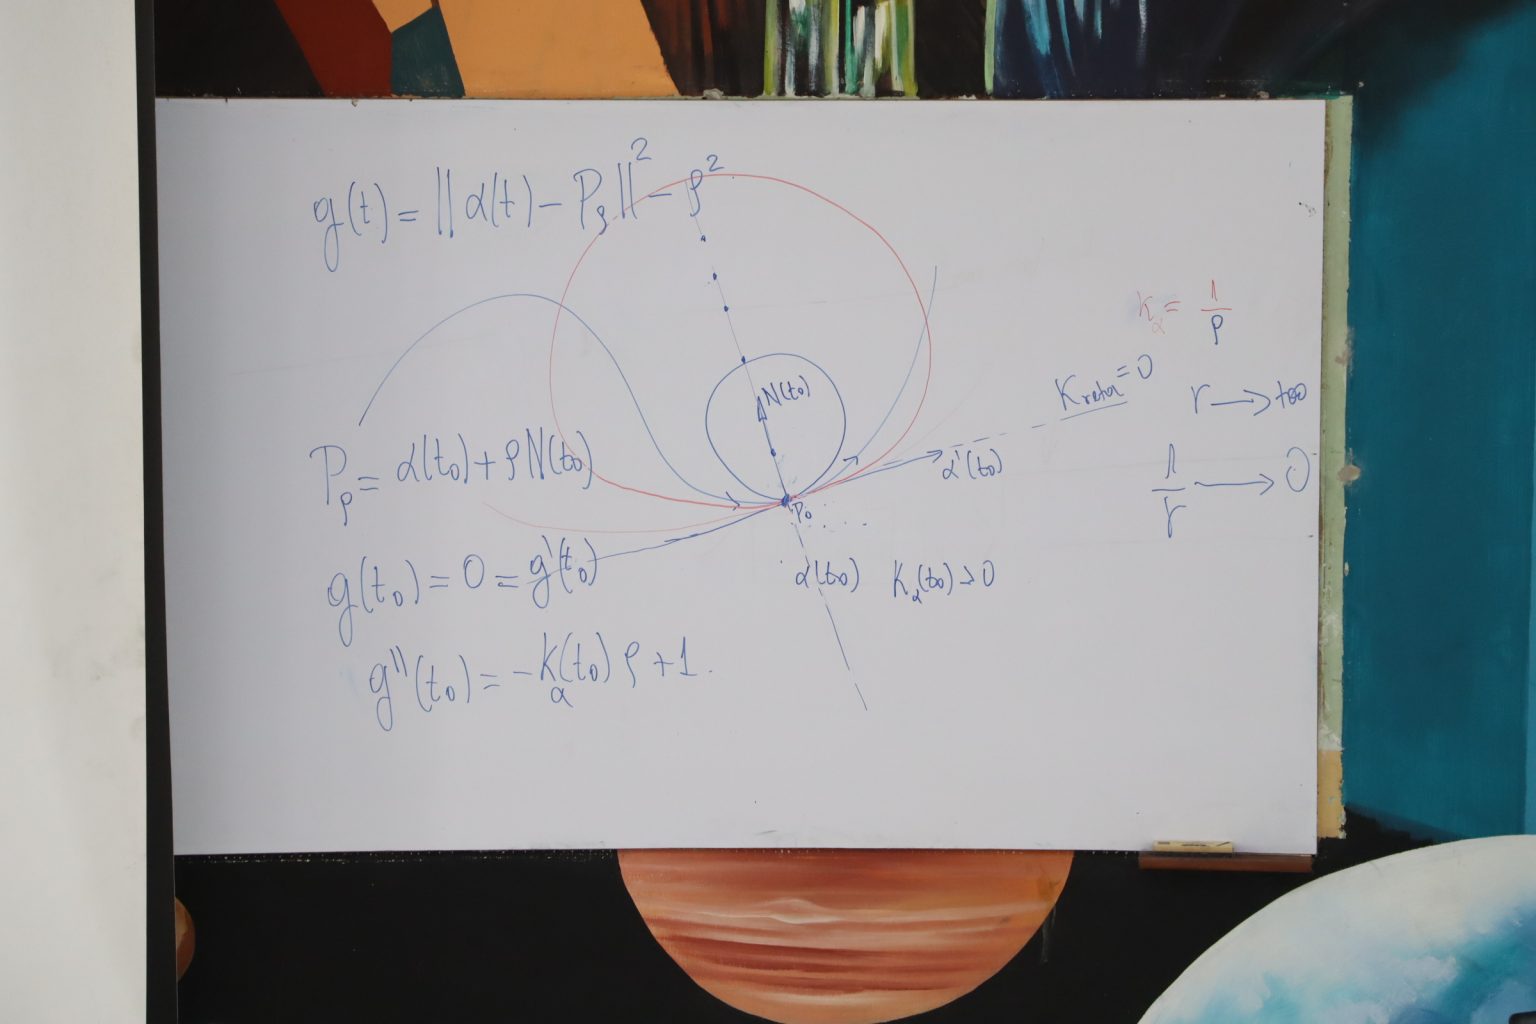 g(t) = ||α(t) - Pρ||² - ρ²
κα = 1/ρ
Kreta = 0
r → +∞
N(t₀)
Pρ = α(t₀) + ρN(t₀)
α'(t₀)
1/r → 0
P₀
g(t₀) = 0 = g'(t₀)
α(t₀) Kα(t₀) > 0
g''(t₀) = -kα(t₀) ρ + 1.